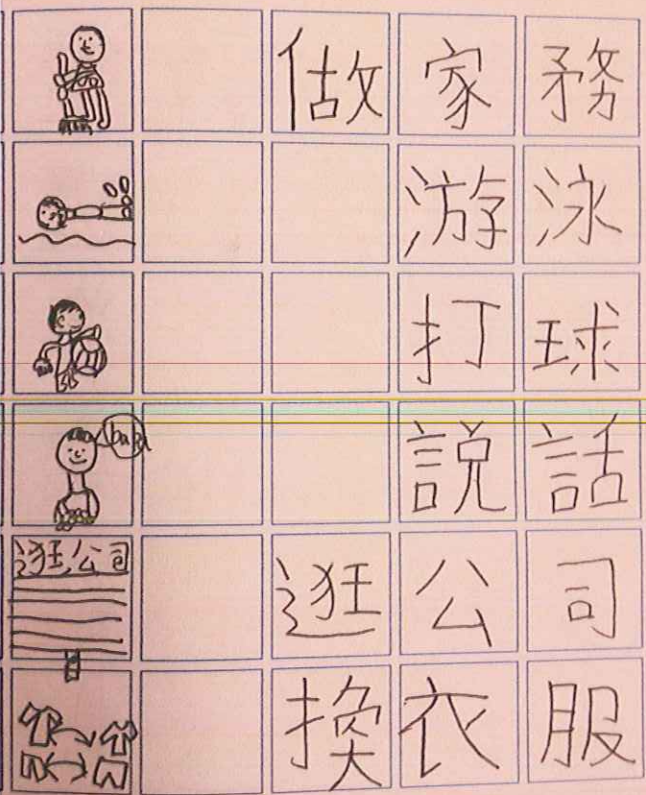 做家務
游泳
打球
説話
逛公司
逛公司
換衣服